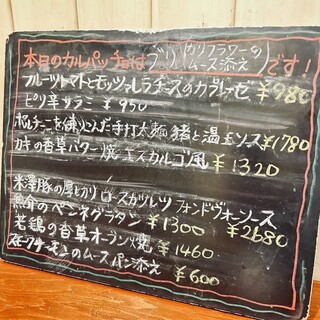 本日のカルパッチョは ブリ カリフラワーの ムース添え です!
フルーツトマトとモッツァレラチーズのカプレーゼ ¥980
ピリ辛サラミ ¥950
ポルチーニを練りこんだ手打太麺 温玉ソース ¥1780
カキの香草バター焼 エスカルゴ風 ¥1320
米澤豚の厚切りロースカツレツ フォンドヴォーソース ¥2680
魚介のペンネグラタン ¥1300
若鶏の香草オーブン焼 ¥1460
スモークサーモンのムース パン添え ¥600